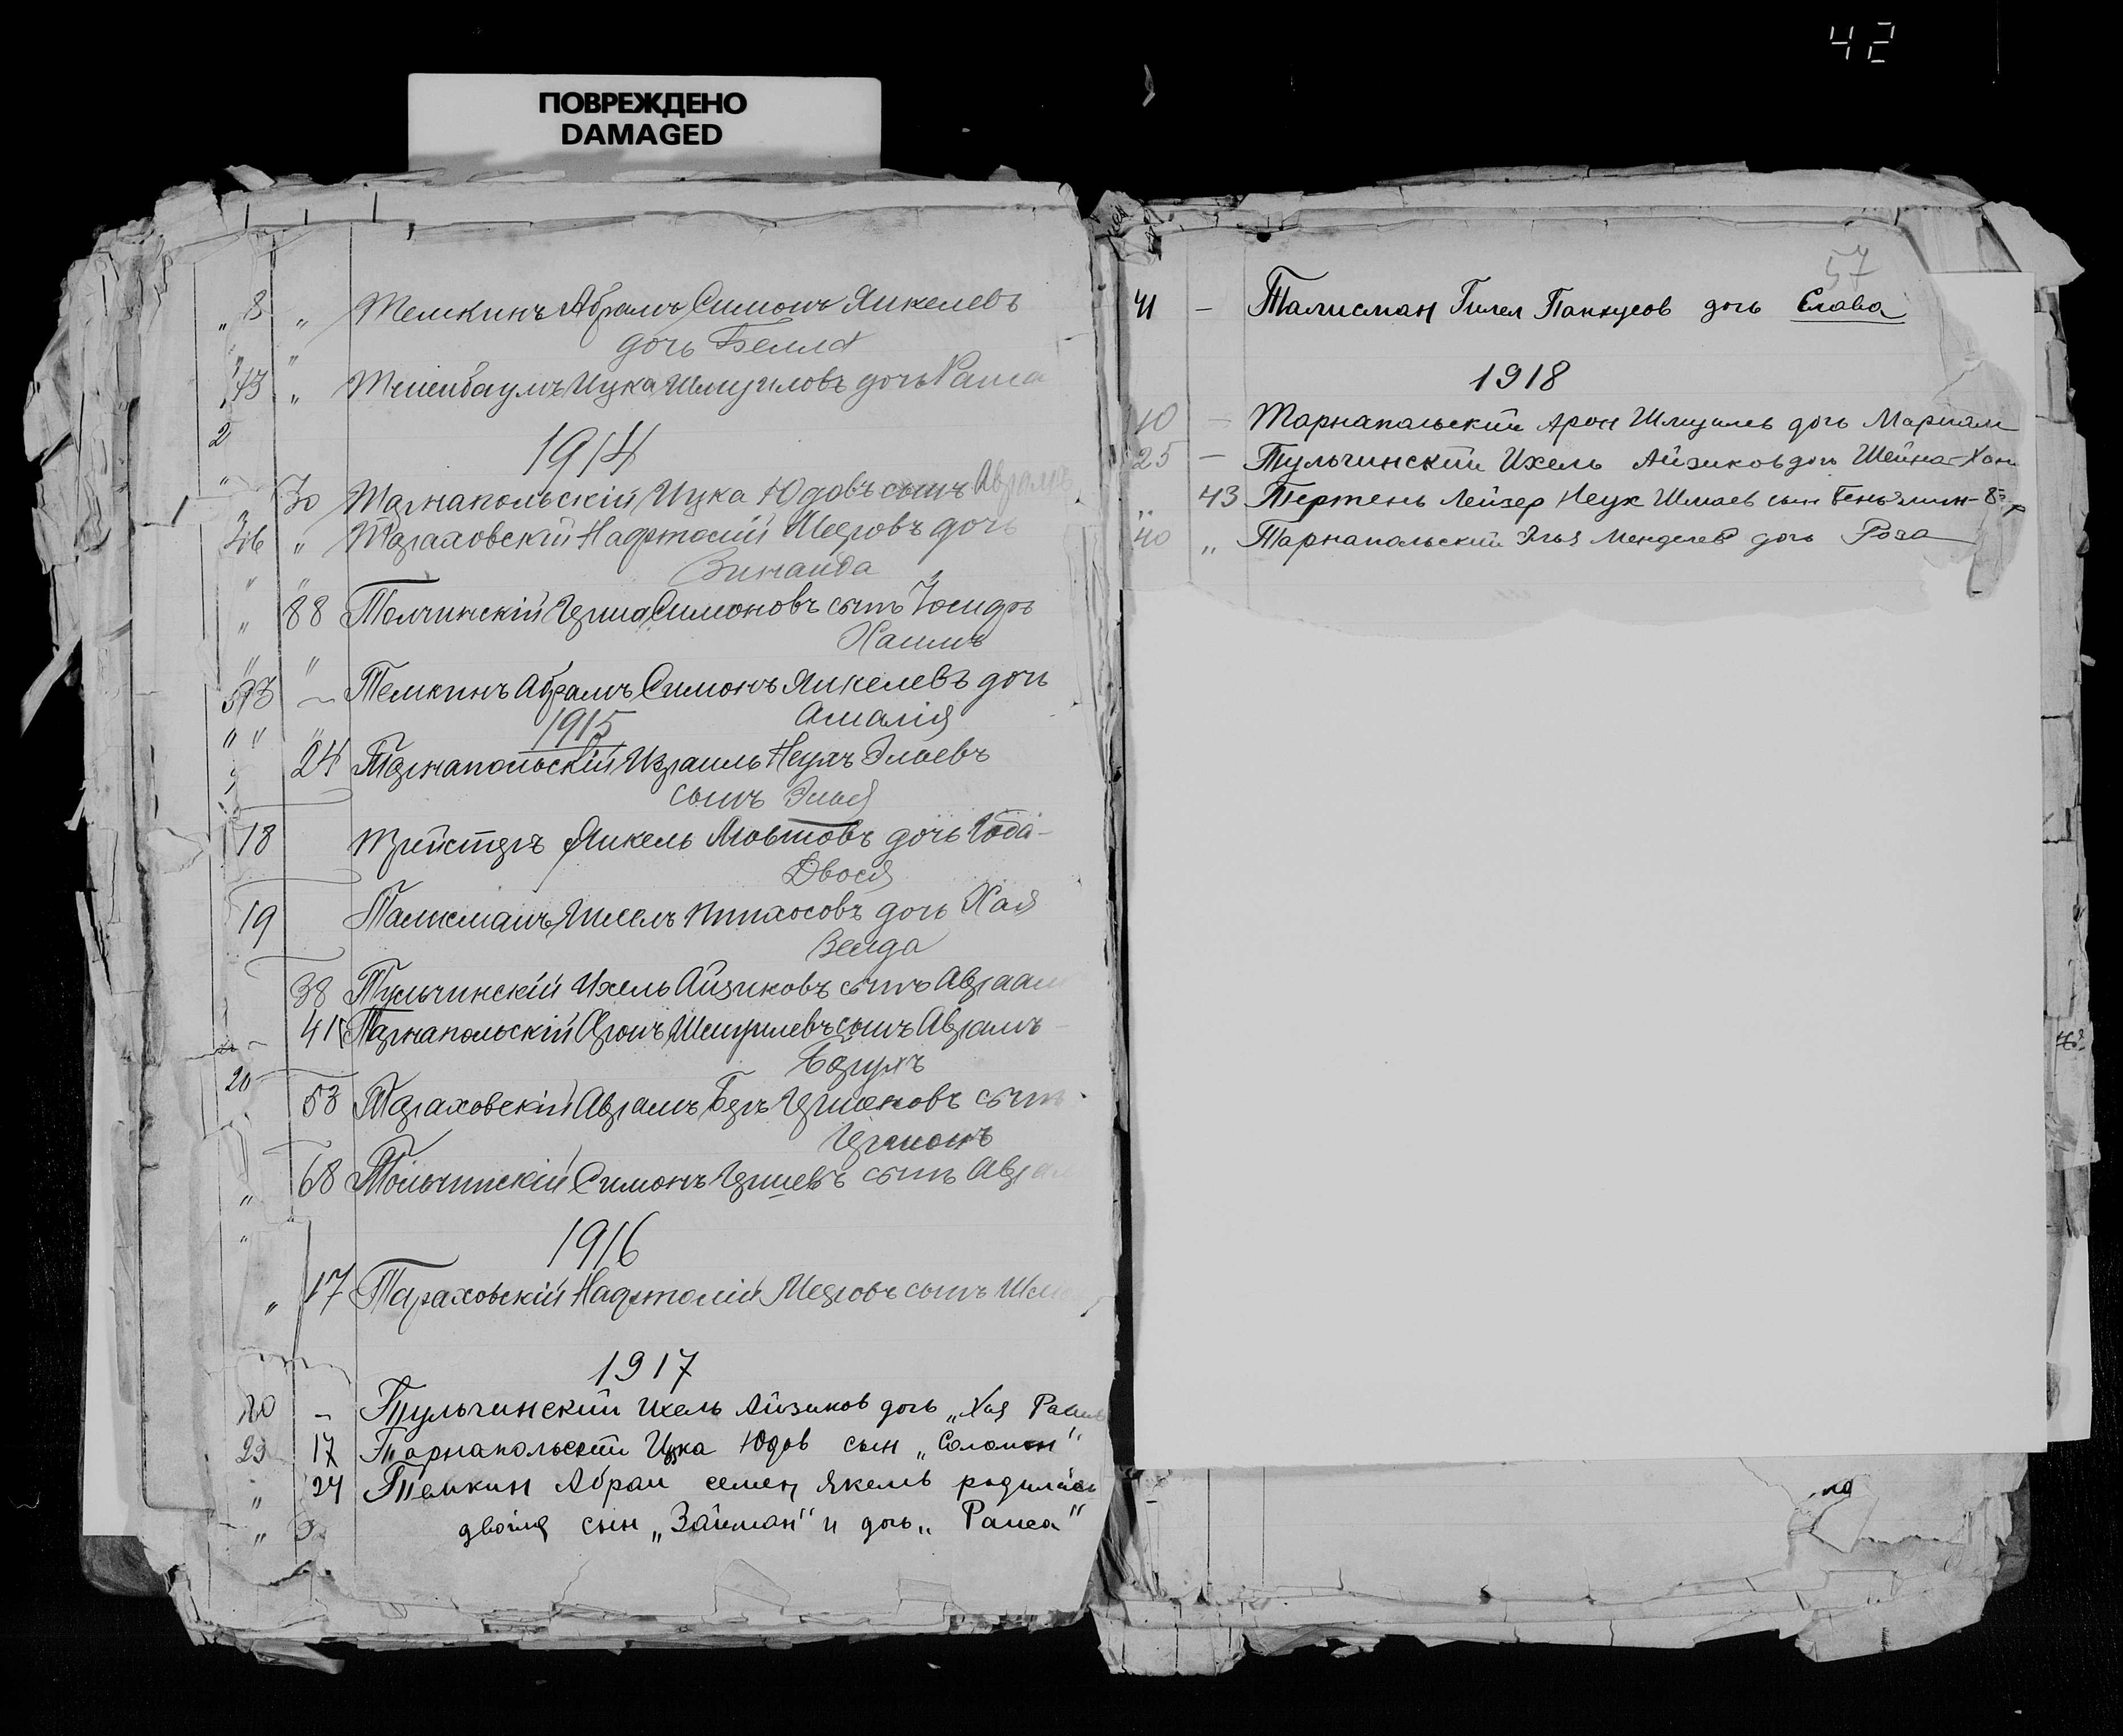 42
ПОВРЕЖДЕНО
DAMAGED
„ 8 „ Темкинъ Абрамъ Симонъ Янкелевъ
дочь Белла
43 „ Тененбаумъ Ицка Шмуиловъ дочь Раиса
2
1914
„ 30 Тарнапольскій Ицка Юдовъ сынъ Аврамъ
36 „ Тараховскій Нафтолій Мееровъ дочь
Зинаида
„ 88 Толчинскій Герша Симоновъ сынъ Іосифъ
Хаимъ
93 – Темкинъ Абрамъ Симонъ Янкелевъ дочь
1915 Амалія
24 Тарнапольскій Израиль Неухъ Эльевъ
сынъ Элья
18 Трейстеръ Янкель Мовшовъ дочь Года-
Двося
19 Талисманъ дочь Хая
Зелда
38 Тульчинскій Ихель Айзиковъ сынъ Авраам
41 Тарнапольскій Аронъ Шмуилевъ сынъ Аврамъ-
20
53 Тараховскій Аврамъ Беръ Гершоновъ сынъ
Гершонъ
„ 68 Тольчинскій Симонъ Гершевъ сынъ Аврам
1916
„ 17 Тараховскій Нафтолій Мееровъ сынъ
1917
20 – Тульчинский Ихель Айзиков дочь „Хая Рахиль
23 17 Тарнапольский Ицка Юдов сын „Соломон"
„ 24 Темкин Абрам семен Якель родились
„ двойня сын „Займан" и дочь „Раиса"
57
41 – Талисман Гилел Пинкусов дочь Слава
1918
10 – Тарнапольский Арон Шмуилев дочь Мариам
25 – Тульчинский Ихель Айзиков дочь Шейна-Хан
„ 43 Пертень Лейзер Неух Шмаев сын Беньямин-
40 „ Тарнапольский Элья Менделев дочь Роза